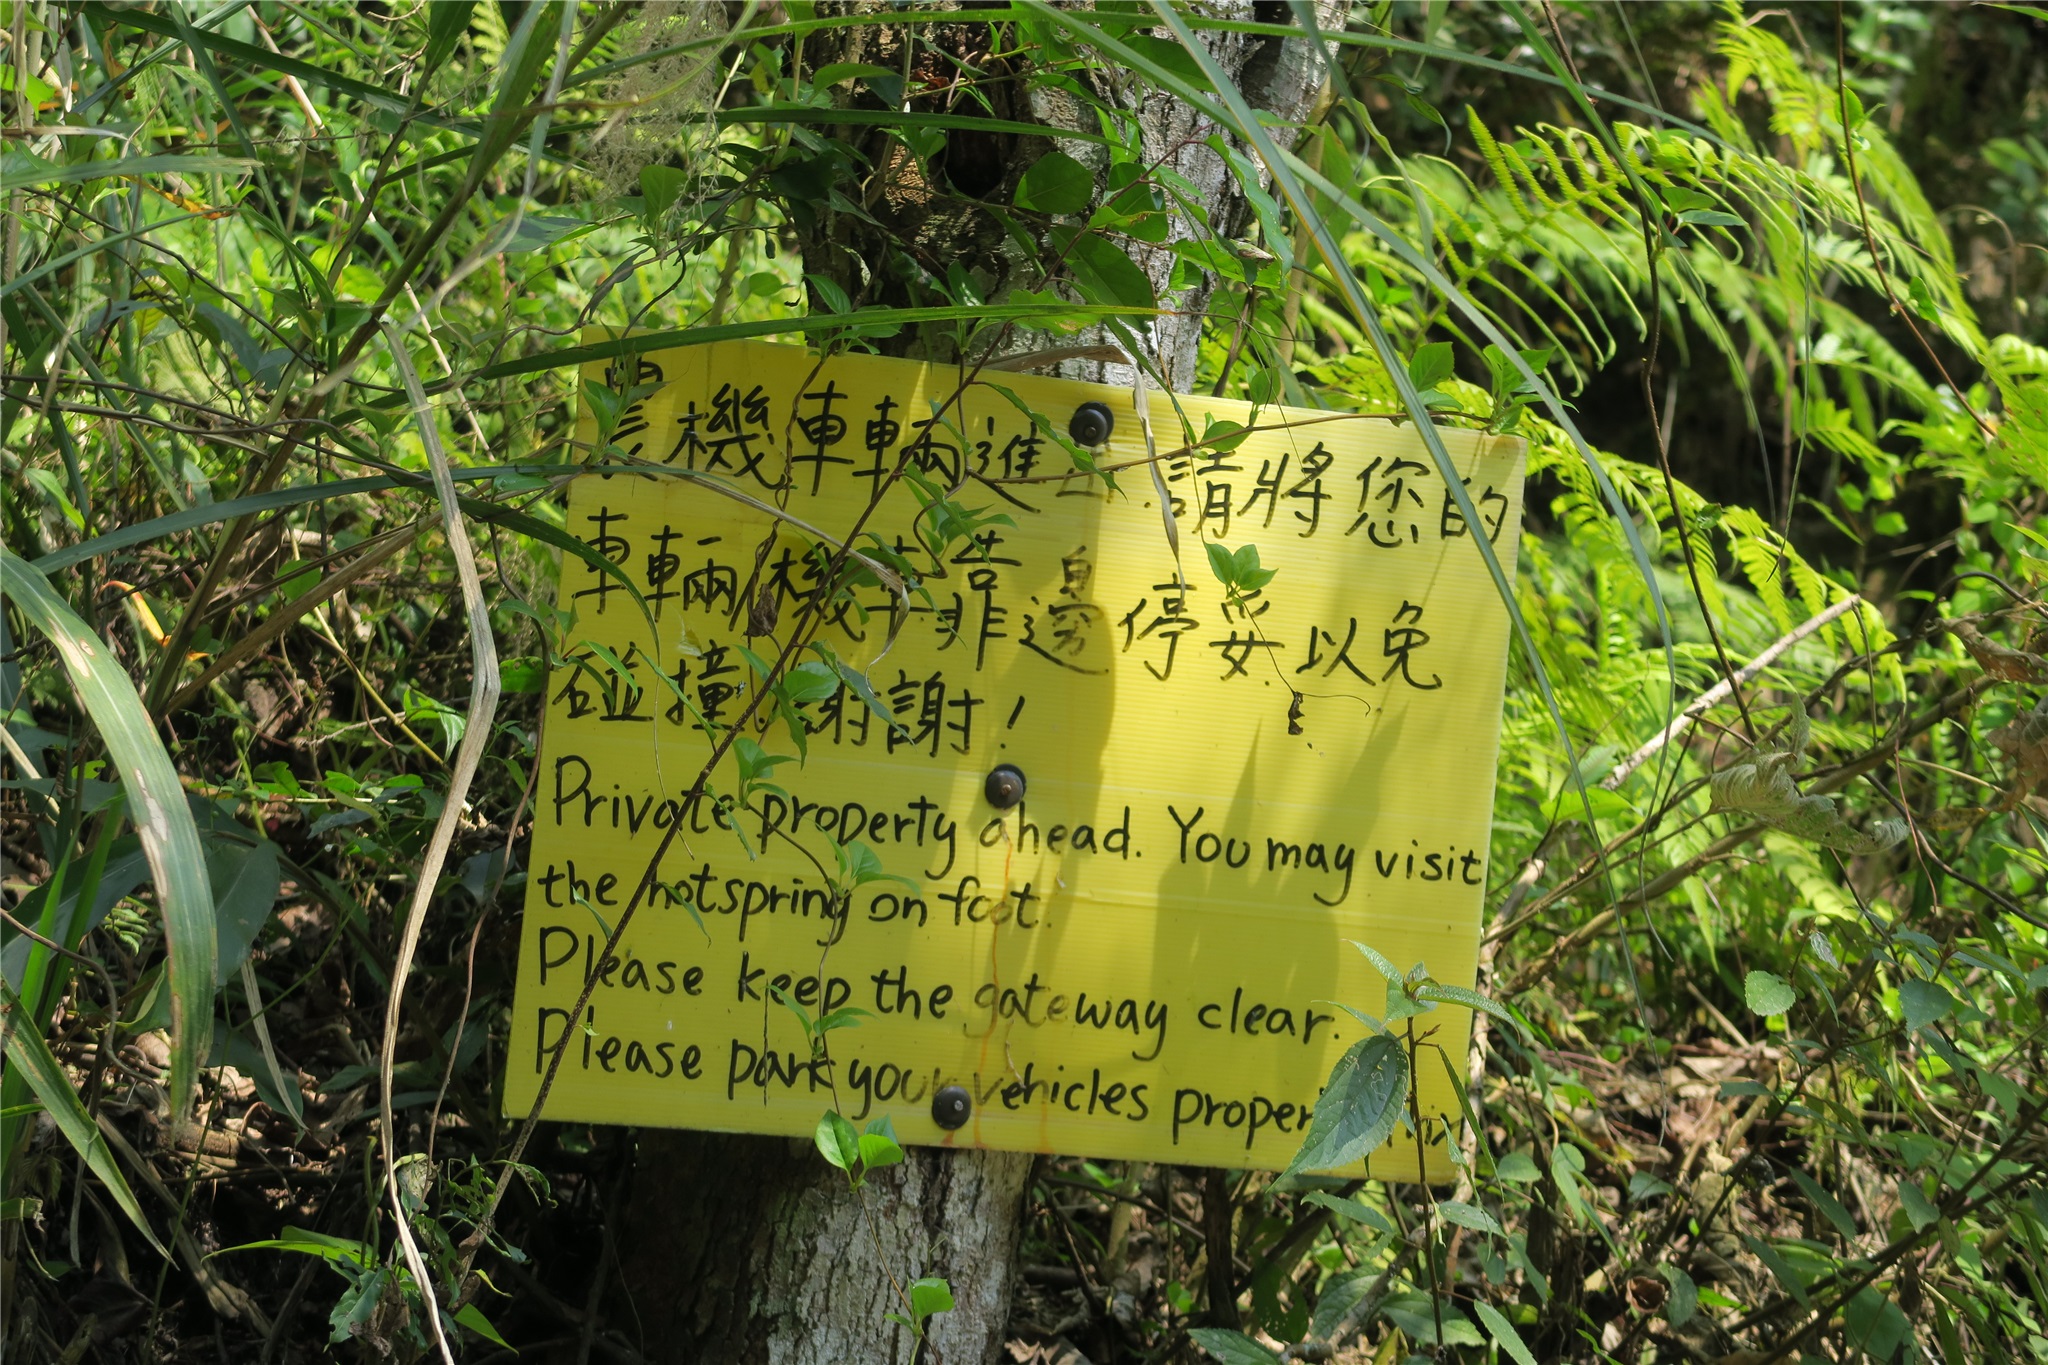 農機車輛進出.請將您的
車輛/機車靠邊停妥.以免
碰撞.謝謝!
Private property ahead. You may visit
the hotspring on foot.
Please keep the gateway clear.
Please park your vehicles